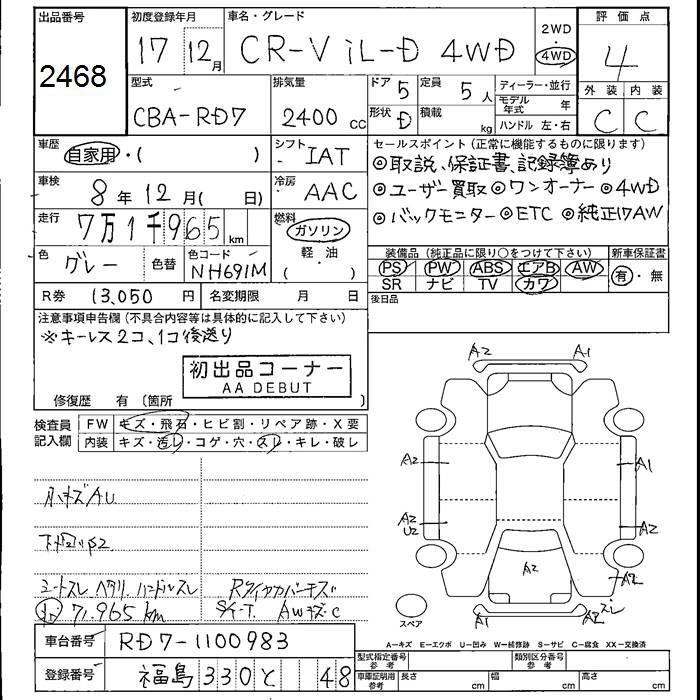 出品番号 2468
初度登録年月 17 12月
車名・グレード CR-V iL-D 4WD
2WD ・ 4WD
評価点 4
外装 C 内装 C
型式 CBA-RD7
排気量 2400 cc
ドア 5 定員 5人
形状 D 積載 kg
ディーラー・並行
モデル年式 年
ハンドル 左・右
車歴 自家用・( )
シフト IAT
車検 8年12月( 日)
冷房 AAC
走行 7万1千965 km
燃料 ガソリン
軽・油
( )
色 グレー 色替
色コード NH691M
R券 13,050円
名変期限 月 日
セールスポイント(正常に機能するものに限ります)
◎取説、保証書、記録簿あり
◎ユーザー買取 ◎ワンオーナー ◎4WD
◎バックモニター ◎ETC ◎純正17AW
装備品(純正品に限り○をつけて下さい)
PS PW ABS エアB AW
SR ナビ TV カワ
新車保証書
有・無
後日品
注意事項申告欄(不具合内容等は具体的に記入して下さい)
※キーレス2コ、1コ後送り
初出品コーナー
AA DEBUT
修復歴 有(箇所 )
検査員記入欄
FW キズ・飛石・ヒビ割・リペア跡・X要
内装 キズ・汚レ・コゲ・穴・スレ・キレ・破レ
小キズAU
シートスレ ヘタリ、ハンドルスレ
71,965 km
AWキズC
A2 A1
A2 A1
A2 U2 A2
A2
A2 スレ
A1 A2
スペア
A=キズ E=エクボ U=凹み W=補修跡 S=サビ C=腐食 XX=交換済
車台番号 RD7-1100983
登録番号 福島 330 と 48
型式指定番号 参考
類別区分番号 参考
車庫証明用 参考
長さ cm 幅 cm 高さ cm